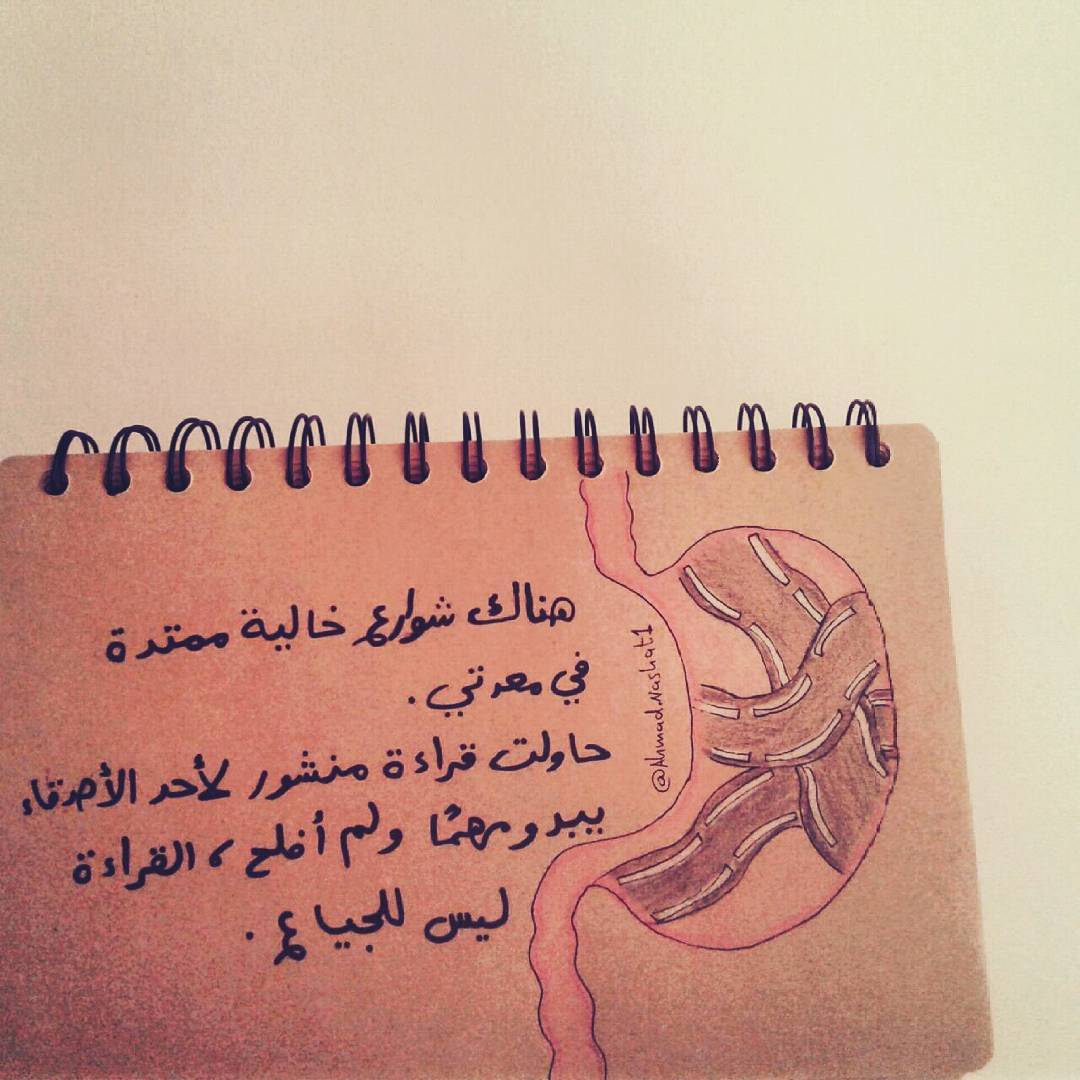 هناك شوارع خالية ممتدة
في معدتي .
حاولت قراءة منشور لأحد الأصدقاء
يبدو مهمًا ولم أفلح ، القراءة
ليس للجياع .
@Ahmad.Nashat1